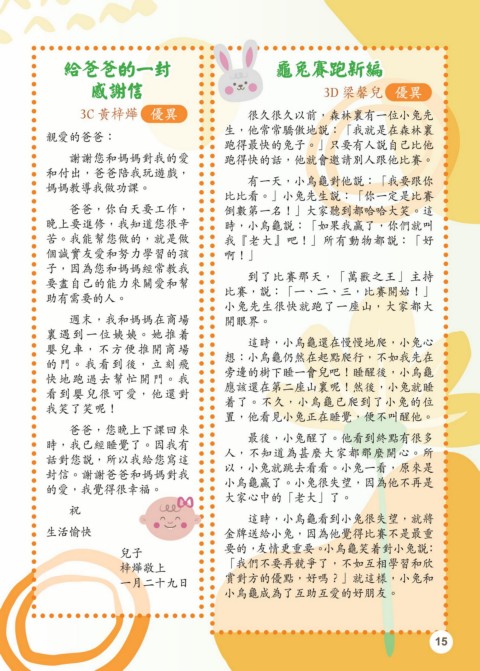 給爸爸的一封
感謝信
3C 黃梓燁 優異
親愛的爸爸：
謝謝您和媽媽對我的愛
和付出，爸爸陪我玩遊戲，
媽媽教導我做功課。
爸爸，你白天要工作，
晚上要進修，我知道您很辛
苦。我能幫您做的，就是做
個誠實友愛和努力學習的孩
子，因為您和媽媽經常教我
要盡自己的能力來關愛和幫
助有需要的人。
週末，我和媽媽在商場
裏遇到一位姨姨。她推着
嬰兒車，不方便推開商場
的門。我看到後，立刻飛
快地跑過去幫忙開門。我
看到嬰兒很可愛，他還對
我笑了笑呢！
爸爸，您晚上下課回來
時，我已經睡覺了。因我有
話對您說，所以我給您寫這
封信。謝謝爸爸和媽媽對我
的愛，我覺得很幸福。
祝
生活愉快
兒子
梓燁敬上
一月二十九日
龜兔賽跑新編
3D 梁馨兒 優異
很久很久以前，森林裏有一位小兔先
生，他常常驕傲地說：「我就是在森林裏
跑得最快的兔子。」只要有人說自己比他
跑得快的話，他就會邀請別人跟他比賽。
有一天，小烏龜對他說：「我要跟你
比比看。」小兔先生說：「你一定是比賽
倒數第一名！」大家聽到都哈哈大笑。這
時，小烏龜說：「如果我贏了，你們就叫
我『老大』吧！」所有動物都說：「好
啊！」
到了比賽那天，「萬獸之王」主持
比賽，說：「一、二、三，比賽開始！」
小兔先生很快就跑了一座山，大家都大
開眼界。
這時，小烏龜還在慢慢地爬，小兔心
想：小烏龜仍然在起點爬行，不如我先在
旁邊的樹下睡一會兒吧！睡醒後，小烏龜
應該還在第二座山裏呢！然後，小兔就睡
着了。不久，小烏龜已爬到了小兔的位
置，他看見小兔正在睡覺，便不叫醒他。
最後，小兔醒了。他看到終點有很多
人，不知道為甚麼大家都那麼開心。所
以，小兔就跳去看看。小兔一看，原來是
小烏龜贏了。小兔很失望，因為他不再是
大家心中的「老大」了。
這時，小烏龜看到小兔很失望，就將
金牌送給小兔，因為他覺得比賽不是最重
要的，友情更重要。小烏龜笑着對小兔說：
「我們不要再競爭了，不如互相學習和欣
賞對方的優點，好嗎？」就這樣，小兔和
小烏龜成為了互助互愛的好朋友。
15